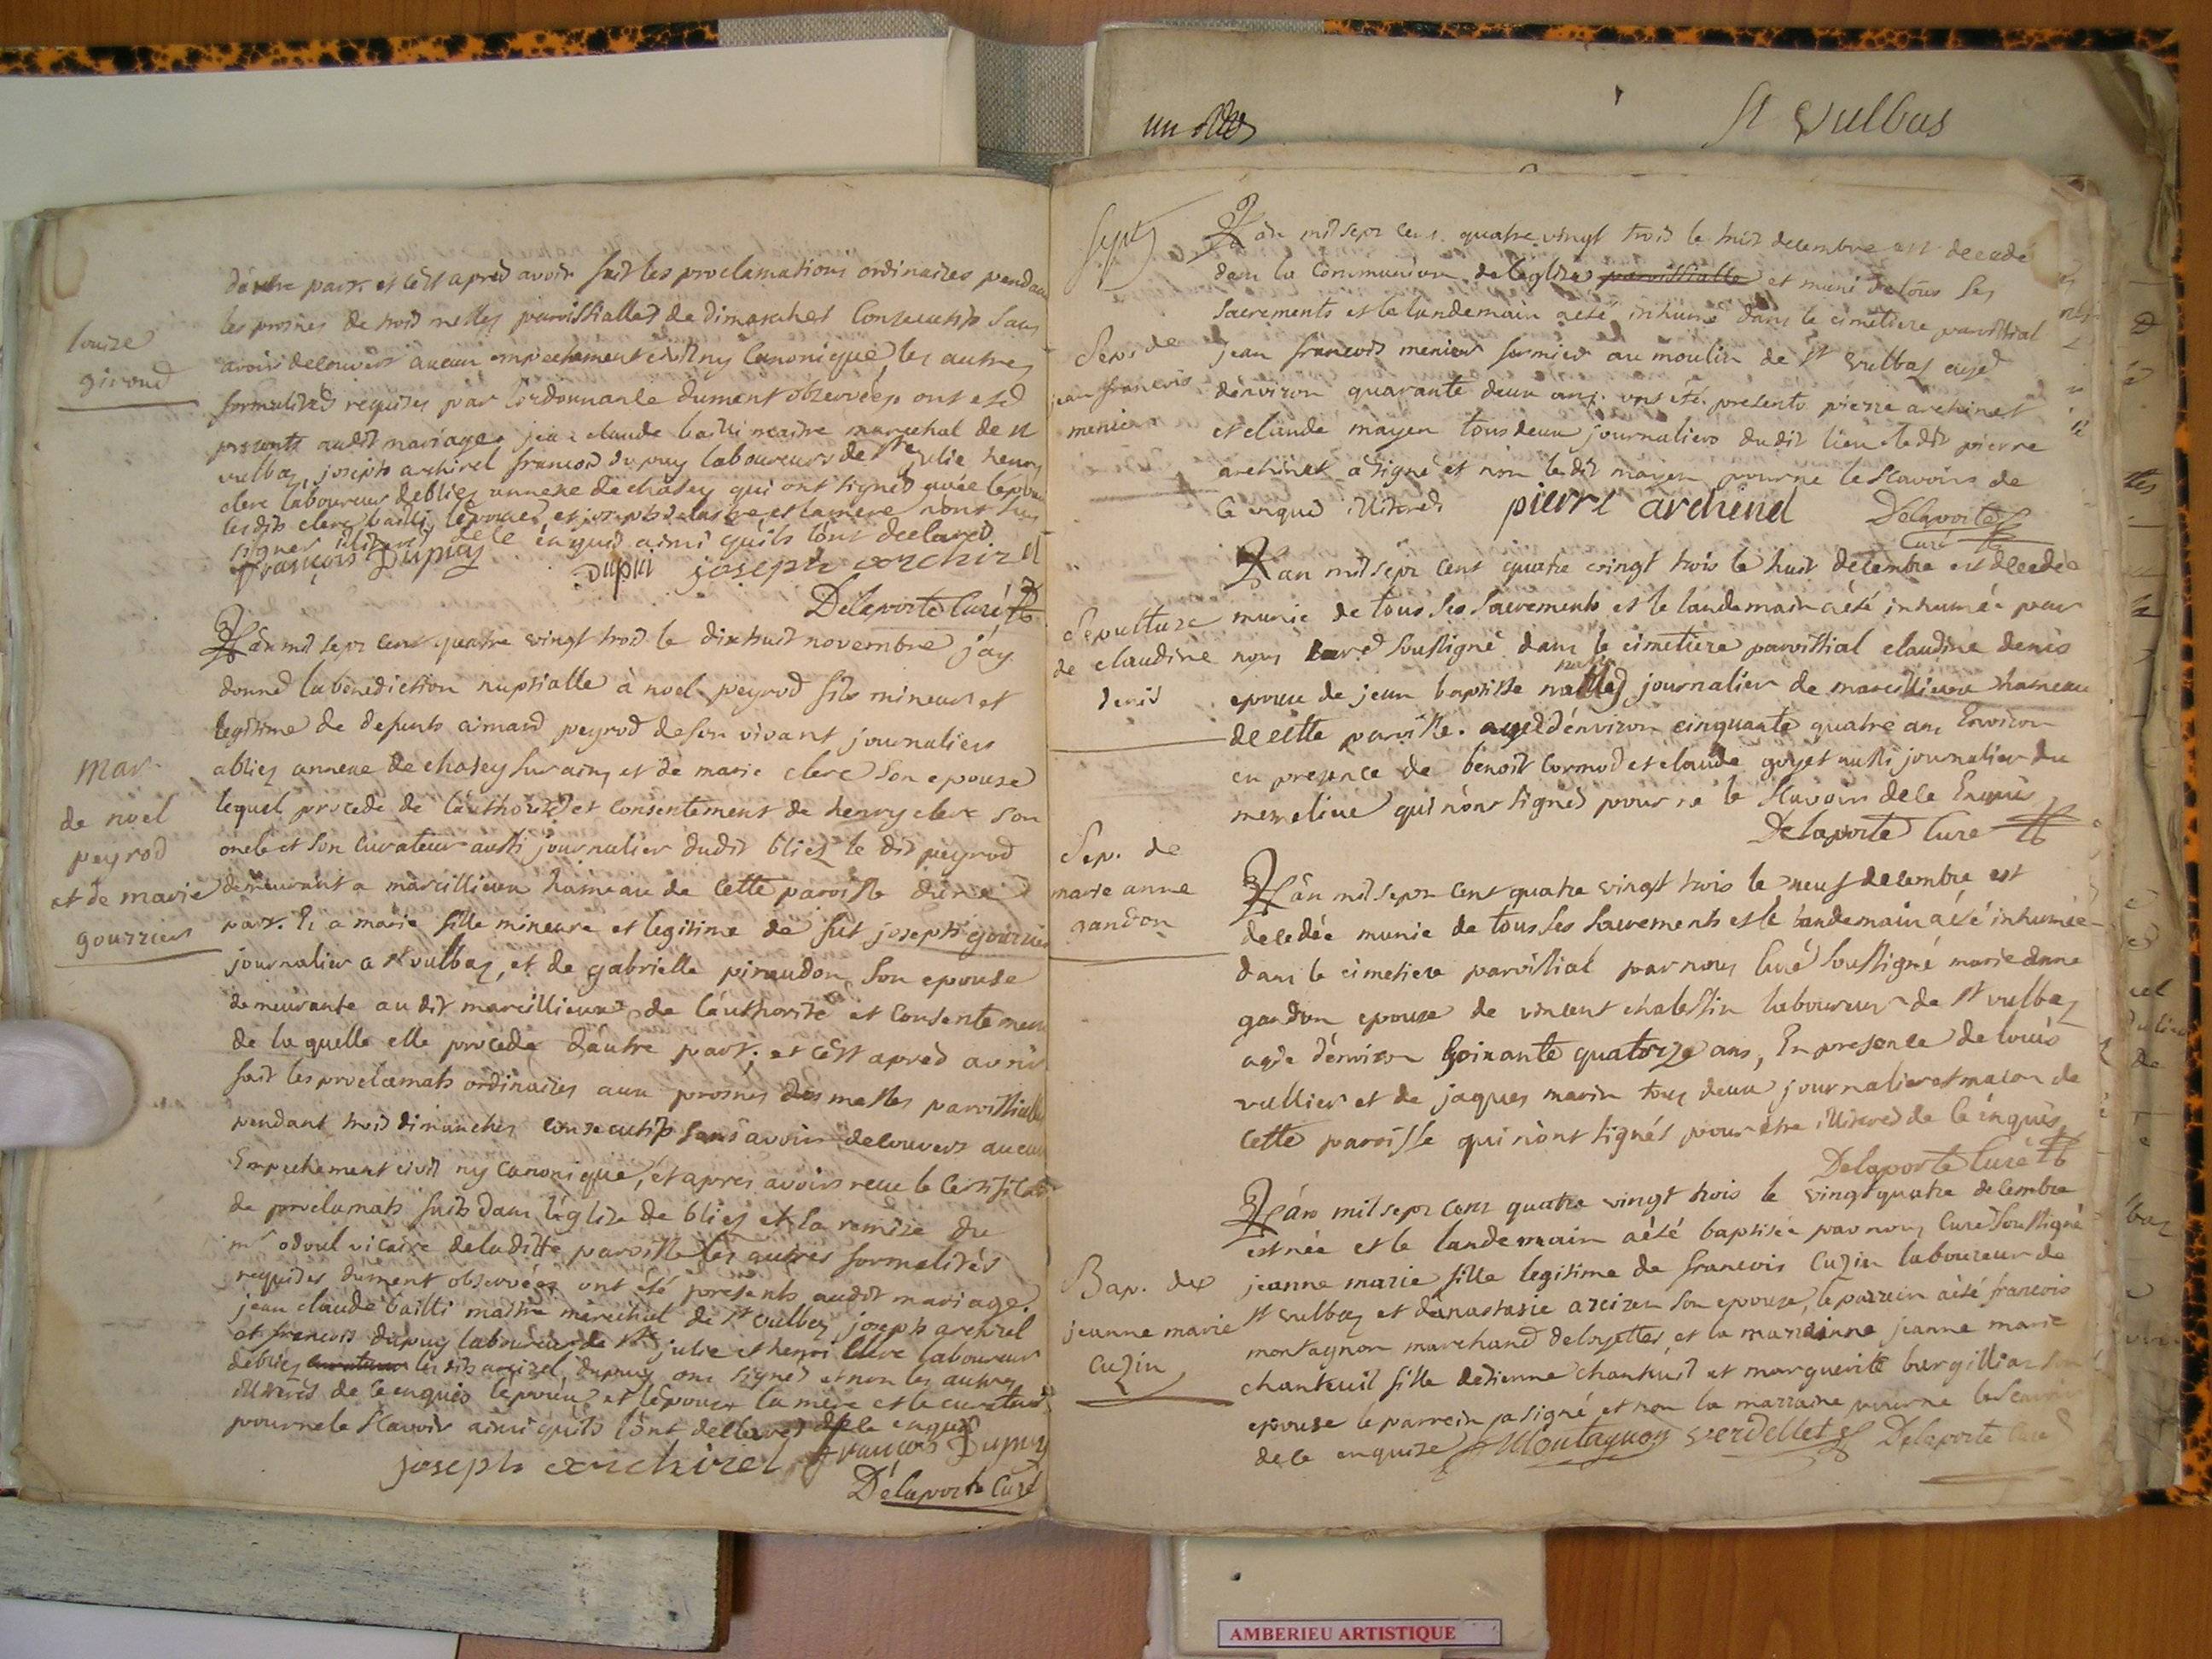 un sols
St Vulbas
d'autre part. et c'est apred avoir fait les proclamations ordinaires pendant
les prosnes de trois messes paroissialles de dimanches consecutifs sans
louize
giroud
avoir decouvert aucun empechement civil ny canonique, les autres
formalited requises par l'ordonnance dument observées ont eted
presents audit mariage, jean claude bailli maitre marechal de st
vulbas, joseph archirel francois dupuy laboureurs de ste julie henry
clerc laboureur de blies annexe de chasey qui ont signed avec
lesdits clerc bailli, l'epouse, et la mere n'ont
signer illitered de ce enquis ainsi qu'ils l'ont declared
françois Dupuy Dupui joseph archirel
Delaporte Curé
L'an mil sept cent quatre vingt trois le dix huit novembre j'ay
donned la benediction nuptialle à noel peyrod fils mineur et
legitime de defunts aimard peyrod de son vivant journalier
a blies annexe de chasey sur ains, et de marie clerc son epouse
Mar.
de noel
peyrod
et de marie
gourrier
lequel procede de l'authorited et consentement de henry clerc son
oncle et son curateur aussi journalier dudit blies le dit peyrod
demeurant a marcillieux hameau de cette paroisse d'une
part. Et a marie fille mineure et legitime de fut joseph gourrier
journalier a st vulbas, et de gabrielle piraudon son epouse
demeurante audit marcillieux de l'authorité et consentement
de laquelle elle procede d'autre part. et c'est apred avoir
fait les proclamats ordinaires aux prosnes des messes paroissialles
pendant trois dimanches consecutifs sans avoir decouvert aucun
Empechement civil ny canonique, et apres avoir receu le certificat
de proclamats faits dans l'eglise de blies et la remise du
mr odoul vicaire de la ditte paroisse les autres formalités
requises dument observées ont été presents audit mariage
jean claude bailli maitre marechal de st vulbas joseph archirel
et francois dupuy laboureur de ste julie et henri clerc laboureur
de blies lesdits archirel, dupuy ont signed et non les autres
illitrés de ce enquis l'epoux et l'epouse la mere et le curateur
pour ne le scavoir ainsi qu'ils l'ont declared de ce enquis
joseph archirel François Dupuy
Delaporte Curé
Sept
L'an mil sept cent quatre vingt trois le huit decembre est decede
dans la communion de l'eglise paroissialle et muni de tous ses
sacrements et le landemain aété inhumé dans le cimetiere paroissial
Sep. de
jean francois
menier
jean francois menier fermier au moulin de st vulbas aged
d'environ quarante deux ans. ont été presents pierre archinet
et claude mayen tous deux journaliers dudit lieu ledit pierre
archinet a signé et non ledit mayen pour ne le scavoir de
ce enquis illitered pierre archinel Delaporte
Curé
L'an mil sept cent quatre vingt trois le huit decembre est decedée
munie de tous ses sacrements et le landemain aété inhumée par
Sepulture
de claudine
denis
nous curé soussigné dans le cimetiere paroissial claudine denis
epouse de jean baptiste journalier de marcillieux hameau
de cette paroisse. aged d'environ cinquante quatre ans Environ
en presence de benoit cormod et claude goyet aussi journalier du
meme lieux qui n'ont signed pour ne le scavoir de ce Enquis
Delaporte Curé
Sep. de
marie anne
gandon
L'an mil sept cent quatre vingt trois le neuf decembre est
decedée munie de tous ses sacrements et le landemain aété inhumée
dans le cimetiere paroissial par nous curé soussigné marie anne
gandon epouse de vincent chalestin laboureur de st vulbas
agée d'environ soixante quatorze ans, En presence de louis
vullier et de jaques marin tous deux journalier et macon de
cette paroisse qui n'ont signés pour etre illitered de ce enquis
Delaporte Curé
L'an mil sept cent quatre vingt trois le vingt quatre decembre
est née et le landemain aété baptisée par nous Curé soussigné
Bap. de
jeanne marie
cuzin
jeanne marie fille legitime de francois Cuzin laboureur de
st vulbas et d'anastasie son epouse, le parrein aété francois
montagnon marchand de loyettes et la marrainne jeanne marie
chanteuil fille d'etienne chanteuil et marguerite burgilliar son
epouse le parrein a signé et non la marraine pour ne le scavoir
de ce enquise Montagnon verdellet Delaporte Curé
AMBERIEU ARTISTIQUE